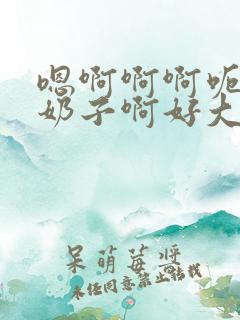 嗯啊啊啊呃
奶子啊好大
呆萌莓酱
未经同意禁止转载